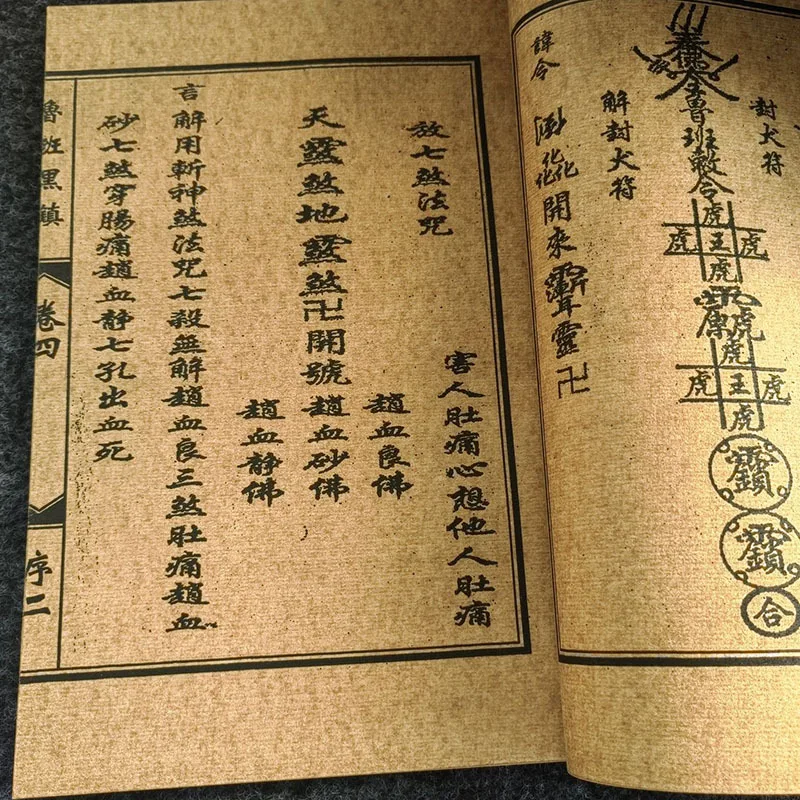 封犬符
魯班敕令
虎
虎王虎
虎
虎
虎
虎王虎
虎
合
解封犬符
諱令
開來
靈卍
放七煞法咒
害人肚痛心想他人肚痛
趙血良佛
天靈煞地靈煞卍開號趙血砂佛
趙血静佛
言解用斬神煞法咒七殺無解趙血良三煞肚痛趙血
砂七煞穿腸痛趙血静七孔出血死
魯班黑鎮
卷四
序二